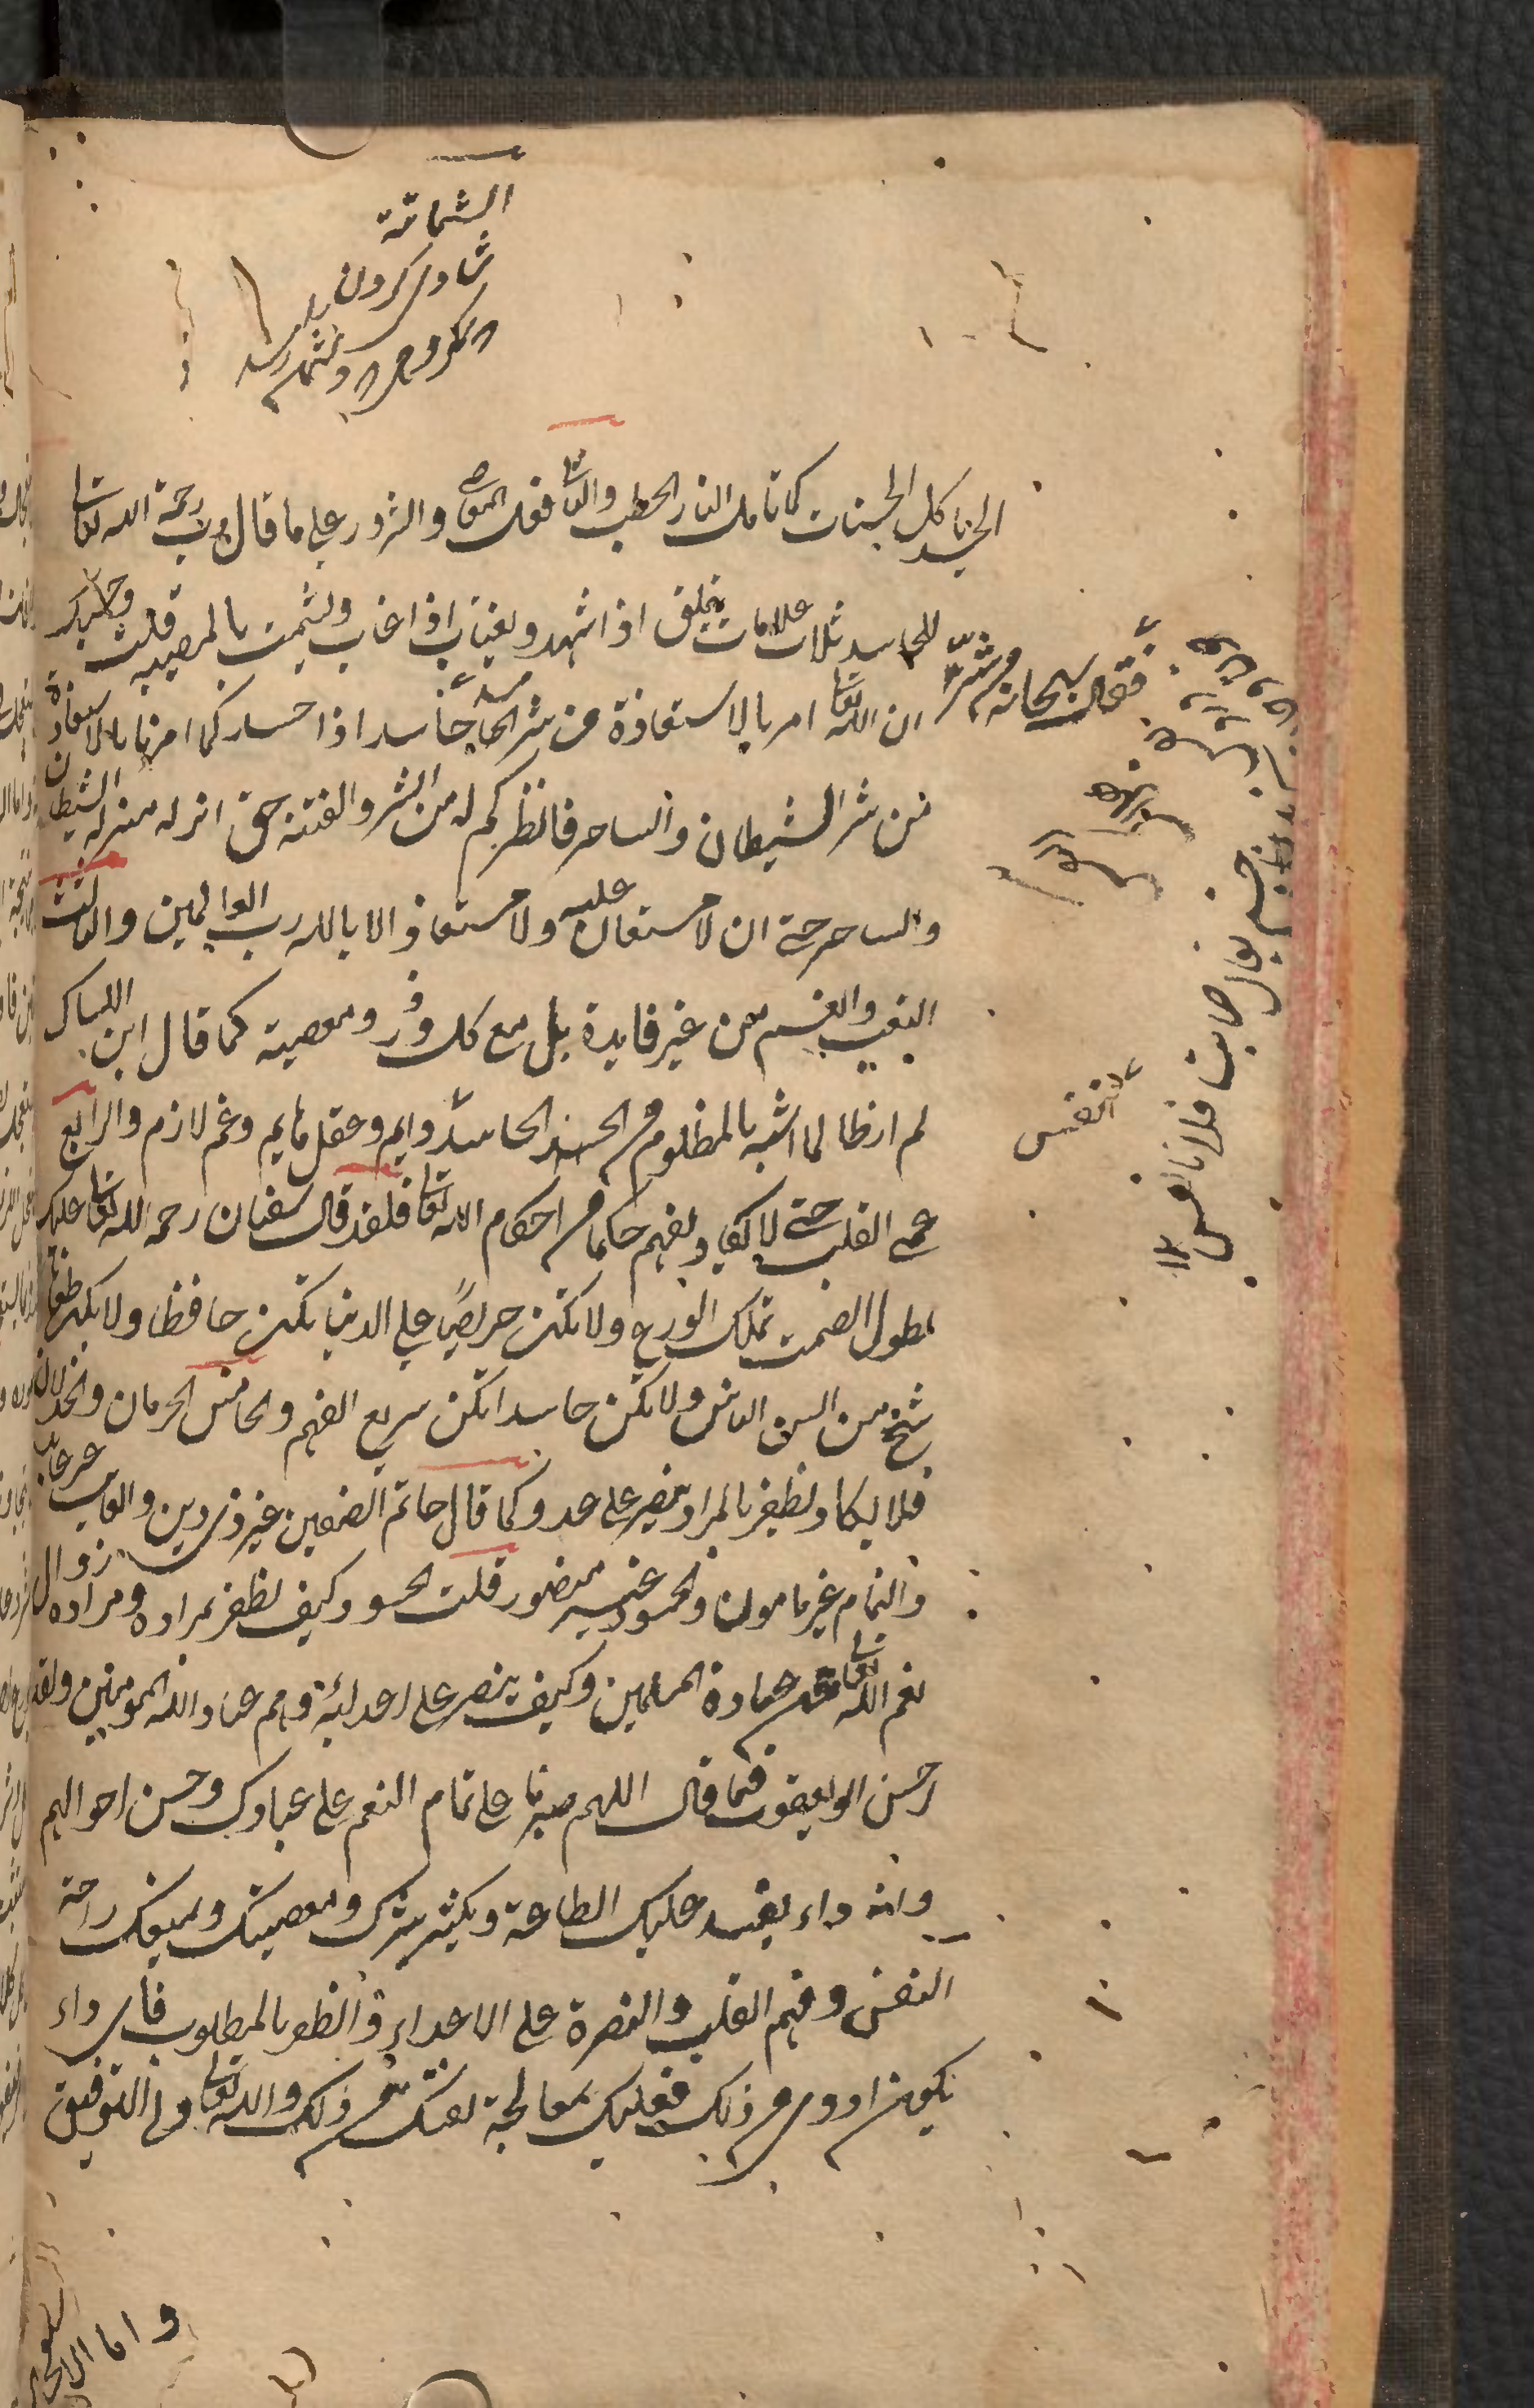 الشماتة
شادی کردن
الحسد یاکل الحسنات کما تاکل النار الحطب والثانی فعل المعاصی والشرور علی ما قال وهب رحمة الله تعالی
للحاسد ثلاث علامات یتملق اذا شهد ویغتاب اذا غاب ویشمت بالمصیبه قلت وحسبک
ان الله تعالی امر بالاستعاذة من شر الحاسد
فقال سبحانه ومن شر حاسد اذا حسد کما امرنا بالاستعاذة
من شر الشیطان والساحر فانظر کم له من الشر والفتنة حتی انزله منزلة الشیطان
والساحر حتی ان لا مستعان علیه ولا مستعاذ الا بالله رب العالمین والثالث
التعب والغم من غیر فایدة بل مع کل وزر ومعصیة کما قال ابن السماک
لم ار ظالما اشبه بالمظلوم من الحاسد نفس دایم وعقل هایم وغم لازم والرابع
عمی القلب حتی لا یکاد یفهم حکما من احکام الله تعالی فلقد قال سفیان رحمه الله تعالی علیک
بطول الصمت تملک الورع ولا تکن حریصا علی الدنیا تکن حافظا ولا تکن طعانا
تنج من السن الناس ولا تکن حاسدا تکن سریع الفهم والخامس الحرمان والخذلان
فلا یکاد یظفر بالمراد وینصر علی عدو کما قال حاتم الضغین غیر ذی دین والعایب غیر عابد
والنمام غیر مامون والحسود غیر منصور قلت الحسود کیف یظفر بمراده ومراده زوال
نعم الله تعالی عن عباده المسلمین وکیف ینصر علی اعدائه وهم عباد الله المومنین ولقد
احسن ابو یعقوب فیما قال اللهم صبرنا علی تمام النعم علی عبادک وحسن احوالهم
وانه داء یفسد علیک الطاعة ویکثر شرک ومعصیتک ویمنعک راحة
النفس وفهم القلب والنصرة علی الاعداء والظفر بالمطلوب فای داء
یکون ادوی من ذلک فعلیک بمعالجة نفسک من ذلک والله تعالی ولی التوفیق
النفس
یقال اصابت فلانا نفس
واما